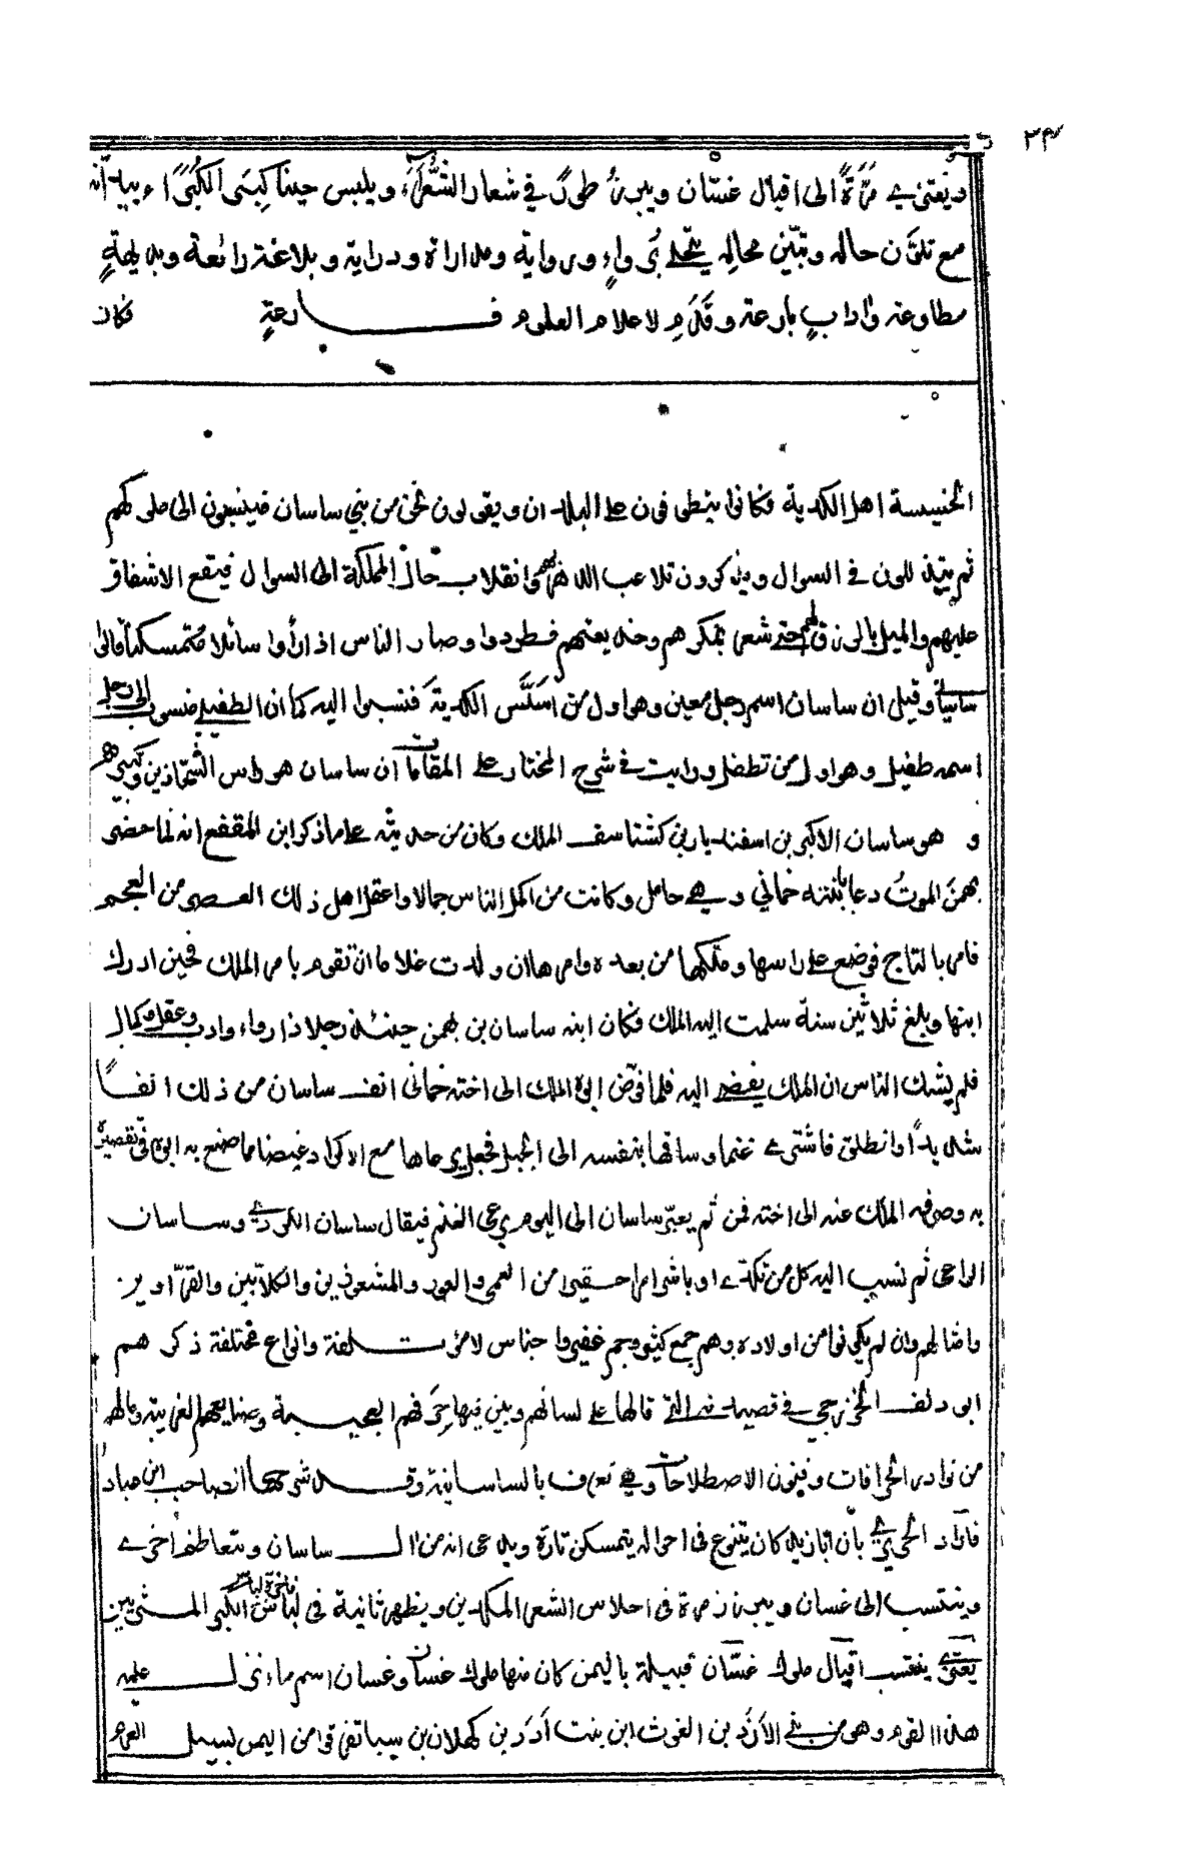 ٢٣
ويعتزي مرّةً الى اقيال غسّان ويبرز طورًا في شعار الشُّعراء ويلبس حينًا كِبَرَ الكُبَراء بيد انّه
مع تلوّن حاله وتبيّن محالِه يتحلّى برُواءٍ ورواية ومداراة ودراية وبلاغة رائعة وبديهةٍ
مطاوعة وآدابٍ بارعة وقَدَمٍ لاعلام العلوم فارعةٍ فكان
الخسيسة اهل الكدية فكانوا يتطوفون على البلدان ويقولون نحن من بني ساسان فينسبون الى ملوكهم
ثم يتذللون في السوال ويذكرون تلاعب الدهر بهم وانقلاب حال المملكة الى السوال فيقع الاشفاق
عليهم والميل بالرزق لهم حتى شعر بمكرهم وخديعتهم فطردوا وصار الناس اذا رأوا سائلا متمسكنا قالوا
ساسانيا وقيل ان ساسان اسم رجل معين وهو اول من اسّس الكدية فنسبوا اليه كما ان الطفيلي منسوب الى رجل
اسمه طفيل وهو اول من تطفل ورايت في شرح المختار على المقامات ان ساسان هو راس الشحّاذين وكبيرهم
و هو ساسان الاكبر بن اسفنديار بن كشتاسف الملك وكان من حديثه على ما ذكر ابن المقفع انه لما حضر
بهمنَ الموتُ دعا بابنته خماني وهي حامل وكانت من اكمل الناس جمالا واعقل اهل ذلك العصر من العجم
فامر بالتاج فوضع على راسها وملكها من بعده وامرها ان ولدت غلاما ان تقوم بامر الملك فحين ادرك
ابنها وبلغ ثلاثين سنة سلمت اليه الملك فكان ابنه ساسان بن بهمن حينئذ رجلا ذا رواء وادب وعقل وكمال
فلم يشك الناس ان الملك يفضى اليه فلما فوّض ابوه الملك الى اخته خماني انف ساسان من ذلك انفًا
شديدًا وانطلق فاشترى غنما وساقها بنفسه الى الجبل فجعل يرعاها مع الاكراد غيضا مما صنع به ابوه في تقصيره
به وصرفه الملك عنه الى اخته فمن ثم يعيّر ساسان الى اليوم برعي الغنم فيقال ساسان الكردي وساسان
الراعي ثم نسب اليه كل من تكدّى او باشر امرا حقيرا من العمي والعور والمشعوذين والكلّابين والقرّادين
وامثالهم وان لم يكونوا من اولاده وهم جمع كثير وجم غفير واجناس لا مؤتلفة وانواع مختلفة ذكرهم
ابو دلف الخزرجي في قصيدته التي قالها على لسانهم وبين فيها حِرَفهم العجيبة وصنايعهم الغريبة وما لهم
من نوادر الخرافات وفنون الاصطلاحات وهي تعرف بالساسانية وقد شرحها الصاحب ابن عباد
فاراد الحريري بأن ابا زيد كان يتنوع في احواله يتمسكن تارة ويدعى انه من ال ساسان ويتعاظم اخرى
وينتسب الى غسان ويبرز مرة في احلاس الشعر المكدين ويظهر ثانية في لباس فاخرة لباس الكبر المثريين
يعتزي ينتسب اقيال ملوك غسّان قبيلة باليمن كان منها ملوك غسان وغسان اسم ماء نزل عليه
هذا القوم وهو من بني الأزْد بن الغوث ابن بنت أدَد بن كهلان بن سبا تفرقوا من اليمن لسيل العرم